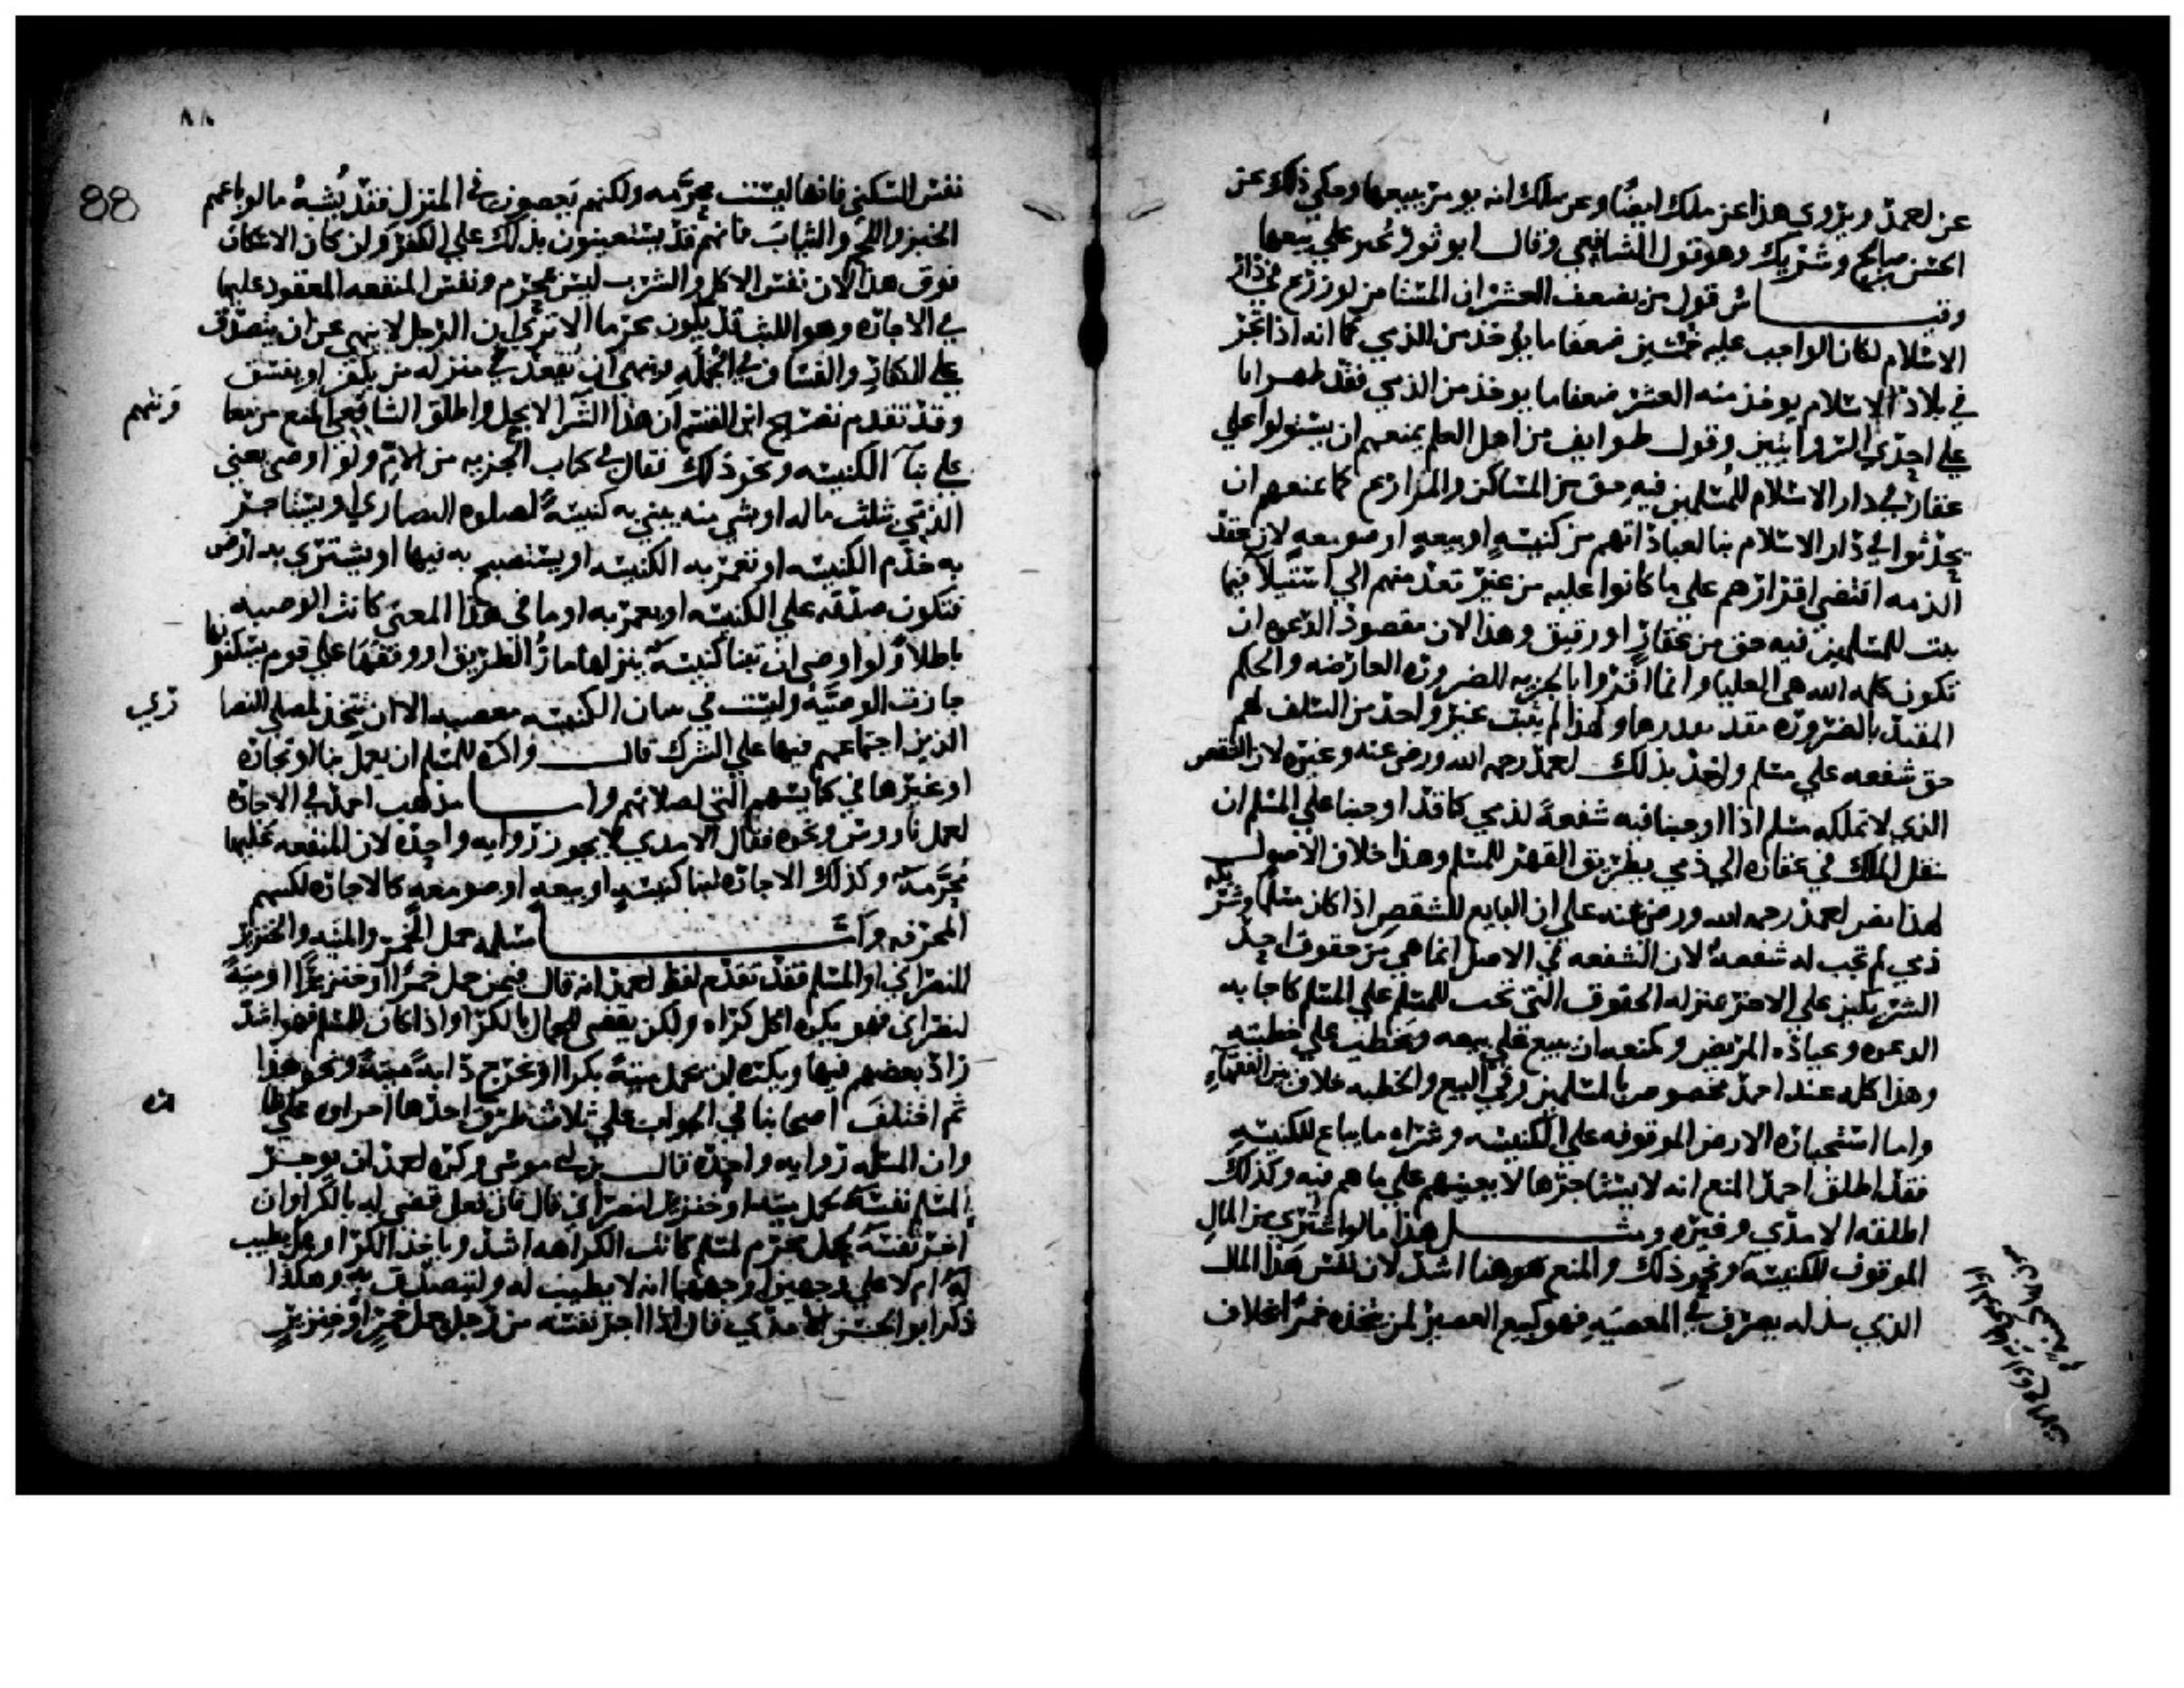 عن احمد ويروى هذا عن ملك ايضا وعن ملك انه يومر ببيعها وحكي ذلك عن
الحسن بن صالح وشريك وهو قول الشافعي وقال ابو ثور يجبر على بيعها
وقياس قول من يضعف العشر ان المستامن لو زرع في دار
الاسلام لكان الواجب عليه خمسين ضعفا ما يوخذ من الذمي كما انه اذا اتجر
في بلاد الاسلام يوخذ منه العشر ضعفا ما يوخذ من الذمي فقد ظهر انا
على احدى الروايتين وقول طوايف من اهل العلم يمنعهم ان يستولوا على
عقار في دار الاسلام للمسلمين فيه حق من المساكن والمزارع كما نمنعهم ان
يحدثوا في دار الاسلام بنا لعباداتهم من كنيسة او بيعة او صومعة لان عقد
الذمه اقتضى اقرارهم على ما كانوا عليه من غير تعد منهم الى استيلا فيما
ثبت للمسلمين فيه حق من عقار او رقيق وهذا لان مقصود الدعوه ان
تكون كلمه الله هي العليا وانما اقروا بالجزيه للضروره العارضه والحكم
المقيد بالضروره مقدر بقدرها ولهذا لم يثبت غير واحد من السلف لهم
حق شفعه على مسلم واخذ بذلك احمد رحمه الله ورضى عنه وغيره لان الشقص
الذي لا تملكه مسلم اذا اوجبنا فيه شفعة لذمي كنا قد اوجبنا على المسلم ان
ينقل الملك في عقاره الى ذمي بطريق القهر للمسلم وهذا خلاف الاصول
لهذا نص احمد رحمه الله ورضى عنه على ان البايع للشقص اذا كان مسلما وشريكه
ذمي لم تجب له شفعة لان الشفعه في الاصل انما هي من حقوق احد
الشريكين على الاخر بمنزله الحقوق التي تجب للمسلم على المسلم كاجابه
الدعوه وعياده المريض وكمنعه ان يبيع على بيعه ويخطب على خطبته
وهذا كله عند احمد مخصوص بالمسلمين وفي البيع والخطبه خلاف بين الفقهاء
واما استيجاره الارض الموقوفه على الكنيسه وشراه ما يباع للكنيسه
فقد اطلق احمد المنع انه لا يستاجرها لا يعينهم على ما هم فيه وكذلك
اطلقه الامدي وغيره ومثل هذا ما لو اشترى من المال
الموقوف للكنيسه ونحو ذلك والمنع هو هنا اشد لان نفس هذا المال
الذي يبذله يصرف في المعصيه فهو كبيع العصير لمن يتخذه خمرا بخلاف
٨٨
88
نفس السكنى فانها ليست محرمه ولكنهم يعصون في المنزل فقد يشبه ما لو باعهم
الخبز واللحم والثياب فانهم قد يستعينون بذلك على الكفر وان كان الاسكان
فوق هذا لان نفس الاكل والشرب ليس بمحرم ونفس المنفعه المعقود عليها
في الاجاره وهو اللبث قد يكون محرما الا ترى ان الرجل لا ينهى عن ان يتصدق
على الكفار والفساق في الجملة وينهى ان يقعد في منزله من يكفر او يفسق
وقد تقدم تصريح ابن القسم ان هذا الشرا لا يحل واطلق الشافعي المنع من معا
ونتهم
على بنآ الكنيسه ونحو ذلك فقال في كتاب الجزيه من الام ولو اوصى يعني
الذمي بثلث ماله او بشي منه يبني به كنيسة لصلوه النصارى او يستاجر
به خدم الكنيسه او تعمر به الكنيسه او يستصبح به فيها او يشتري به ارض
فتكون صدقه على الكنيسه او يعمر به او ما في هذا المعنى كانت الوصيه
باطلا ولو اوصى ان تبنا كنيسة ينزلها مار الطريق او وقفها على قوم يسكنونها
جازت الوصية وليست في بنيان الكنيسه معصيه الا ان تتخذ لمصلى النصا
رى
الذين اجتماعهم فيها على الشرك قال واكره للمسلم ان يعمل بنا او نجاره
او غيرها في كنايسهم التي لصلاتهم واما مذهب احمد في الاجاره
لعمل ناووس ونحوه فقال الامدي لا يجوز روايه واحده لان المنفعه عليها
محرمة وكذلك الاجاره لبنا كنيسه او بيعه او صومعه كالاجاره لكتبهم
المحرفه وأما مسله حمل الخمر والميته والخنزير
للنصراني او المسلم فقد تقدم لفظ احمد انه قال فيمن حمل خمرا او خنزيرا او ميتة
لنصراني فهو يكره اكل كراه ولكن يقضى للحمال بالكرا واذا كان للمسلم فهو اشد
زاد بعضهم فيها ويكره ان يحمل ميتة بكرا او يخرج دابة ميتة ونحو هذا
ثم اختلف اصحابنا في الجواب على ثلاث طرق احدها اجراوه على ظا
هره
وان المسله روايه واحده قال بن ابي موسى وكره احمد ان يوجر
المسلم نفسه لحمل ميته او خنزير لنصراني قال فان فعل قضى له بالكرا وان
اجر نفسه لحمل محرم لمسلم كانت الكراهه اشد وياخذ الكرا وهل يطيب
له ام لا على وجهين اوجههما انه لا يطيب له وليتصدق به وهكذا
ذكر ابو الحسن الامدي قال اذا اجر نفسه من رجل لحمل خمر او خنزير